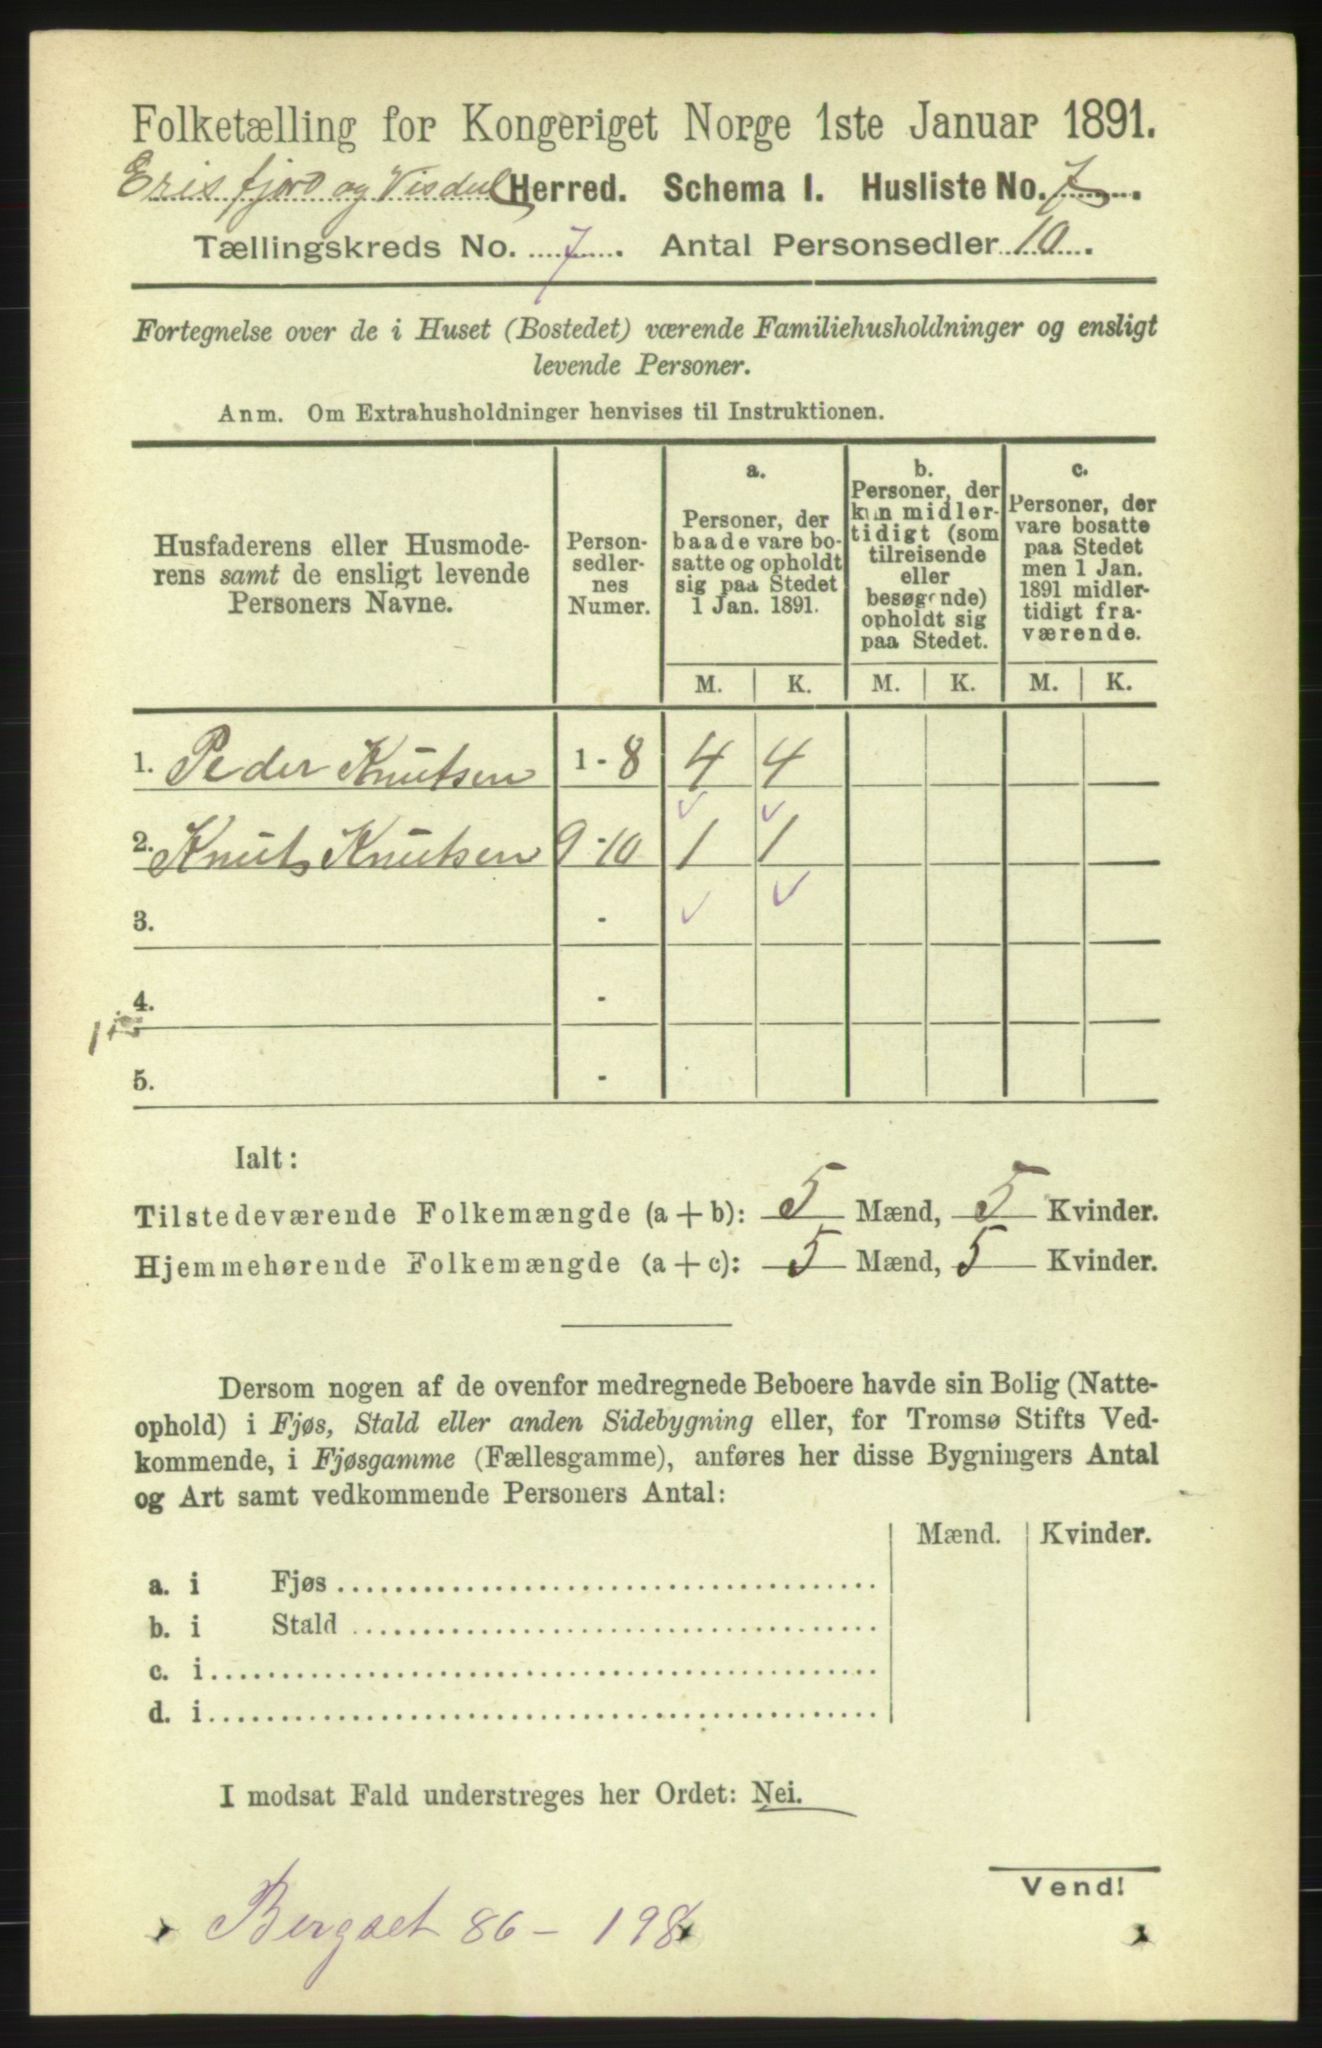 Folketælling for Kongeriget Norge 1ste Januar 1891.
Erisfjord og Visdal Herred. Schema I. Husliste No. 7.
Tællingskreds No. 7. Antal Personsedler 10.
Fortegnelse over de i Huset (Bostedet) værende Familiehusholdninger og ensligt
levende Personer.
Anm. Om Extrahusholdninger henvises til Instruktionen.
Husfaderens eller Husmode-
rens samt de ensligt levende
Personers Navne.
Person-
sedler-
nes
Numer.
a.
Personer, der
baade vare bo-
satte og opholdt
sig paa Stedet
1 Jan. 1891.
b.
Personer, der
kun midler-
tidigt (som
tilreisende
eller
besøgende)
opholdt sig
paa Stedet.
c.
Personer, der
vare bosatte
paa Stedet
men 1 Jan.
1891 midler-
tidigt fra-
værende.
M. K. M. K. M. K.
1. Peder Knutsen 1 - 8 4 4
2. Knut Knutsen 9 - 10 1 1
3. -
4. -
5. -
Ialt:
Tilstedeværende Folkemængde (a + b): 5 Mænd, 5 Kvinder.
Hjemmehørende Folkemængde (a + c): 5 Mænd, 5 Kvinder.
Dersom nogen af de ovenfor medregnede Beboere havde sin Bolig (Natte-
ophold) i Fjøs, Stald eller anden Sidebygning eller, for Tromsø Stifts Ved-
kommende, i Fjøsgamme (Fællesgamme), anføres her disse Bygningers Antal
og Art samt vedkommende Personers Antal:
Mænd. Kvinder.
a. i Fjøs
b. i Stald
c. i
d. i
I modsat Fald understreges her Ordet: Nei.
Vend!
Bergset 86 - 198